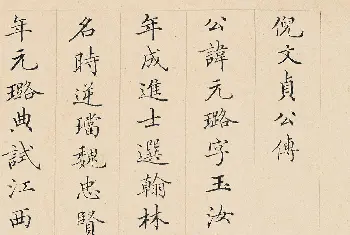 倪文貞公傳
公諱元璐字玉汝
年成進士選翰林
名時逆璫魏忠賢
年元璐典試江西